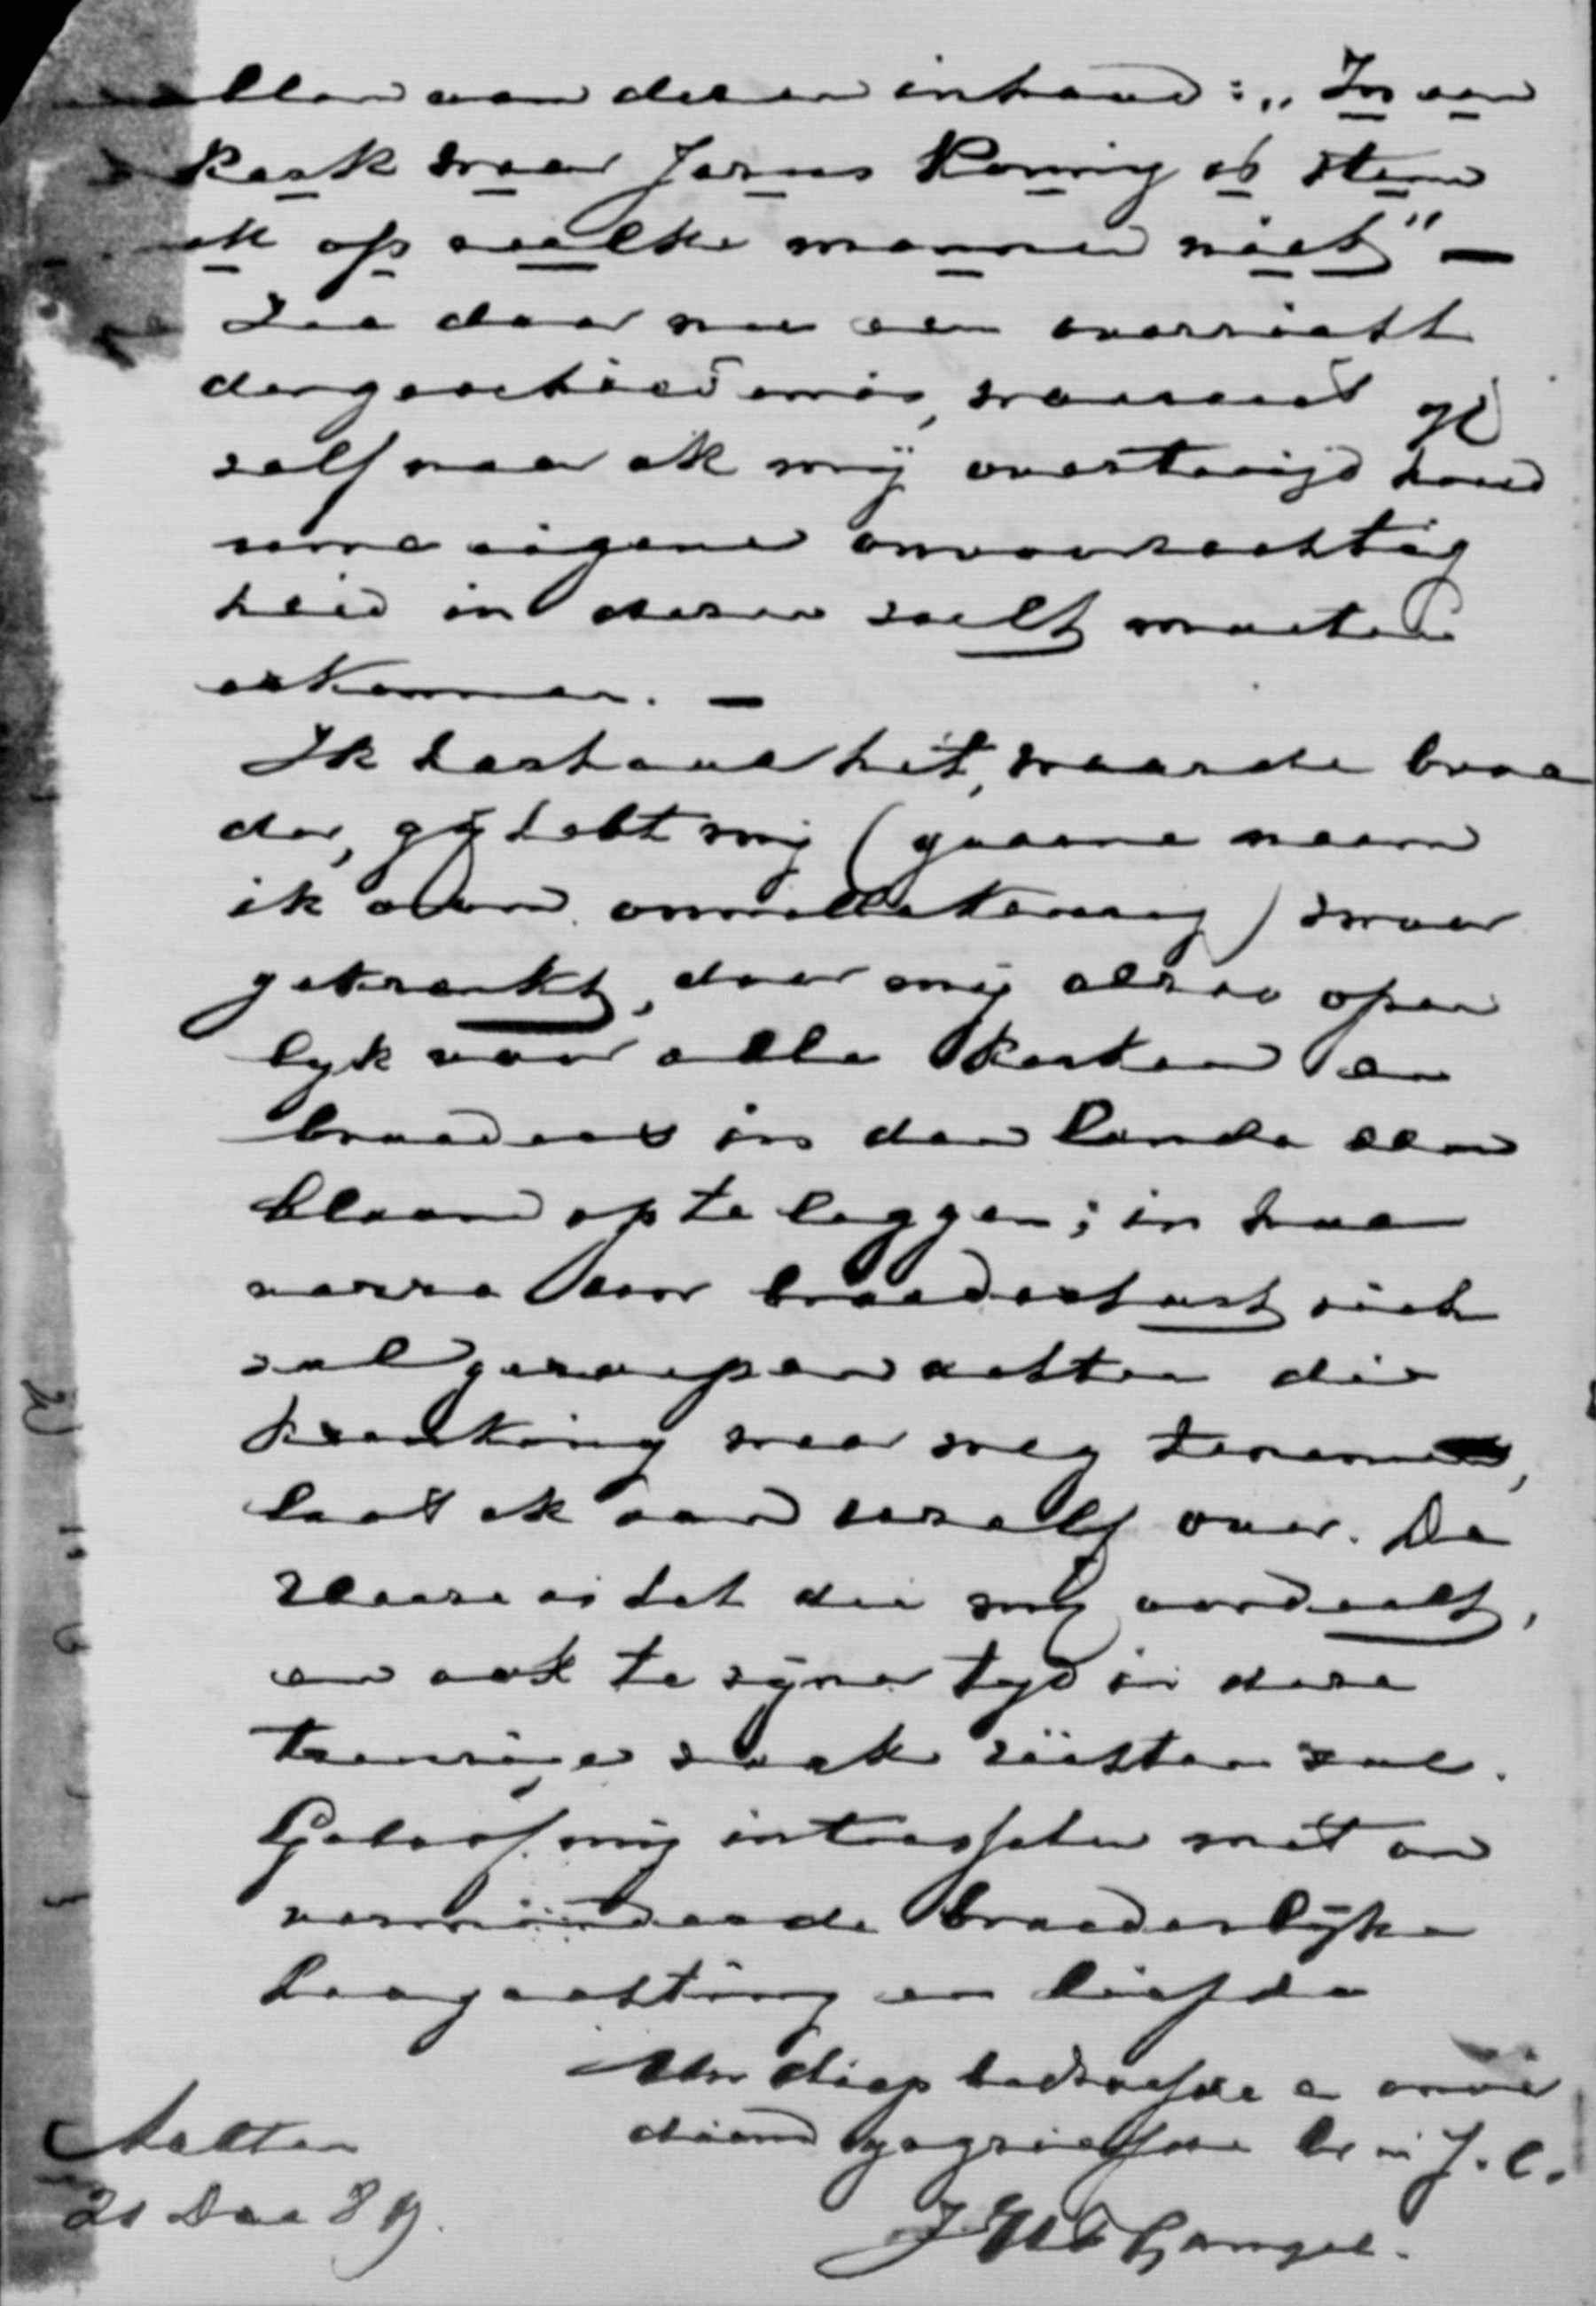 allen van dezen inhoud: „In een
kerk waar Jezus Koning is stem
ik op zulke mannen niet" —
Zie daar nu een overzicht
der geschiedenis, waaruit gij
zelf naar ik mij overtuigd houd
uwe eigene onvoorzichtig
heid in dezen zult moeten
erkennen. —
Ik herhaal het, waarde broe
der, gij hebt mij (gaarne neem
ik aan onwillekeurig) zwaar
gekrenkt, door mij alzoo open
lijk voor alle kerken en
broeders in den lande een
blaam op te leggen; in hoe
verre Uw broederhart zich
zal geroepen achten die
krenking weer weg te nemen,
laat ik aan uzelf over. De
Heere is het die mij oordeelt,
en ook te zijner tijd in deze
treurige zaak richten zal.
Geloof mij intusschen met on
verminderde broederlijke
hoogachting en liefde
Uw diep bedroefde en onver
diend gegriefde br in J. C.
Aalten
21 Dec 89.
Gangel.